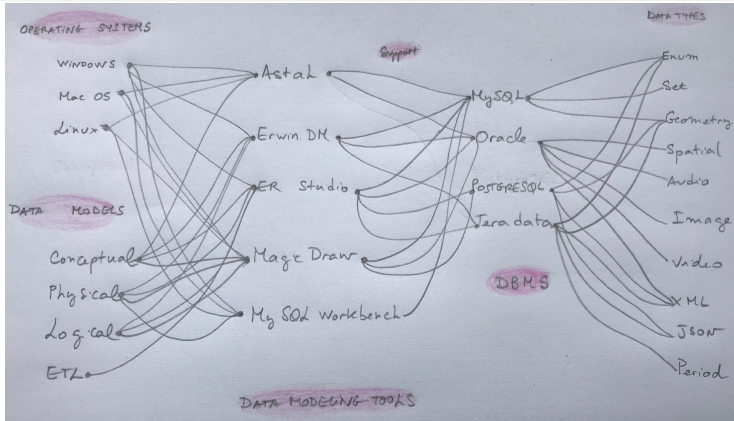 OPERATING SYSTEMS
Windows
Mac OS
Linux
DATA MODELS
Conceptual
Physical
Logical
ETL
Astah
Erwin DM
ER Studio
Magic Draw
My SQL Workbench
DATA MODELING TOOLS
Support
MySQL
Oracle
POSTGRESQL
Teradata
DBMS
DATA TYPES
Enum
Set
Geometry
Spatial
Audio
Image
Video
XML
JSON
Period